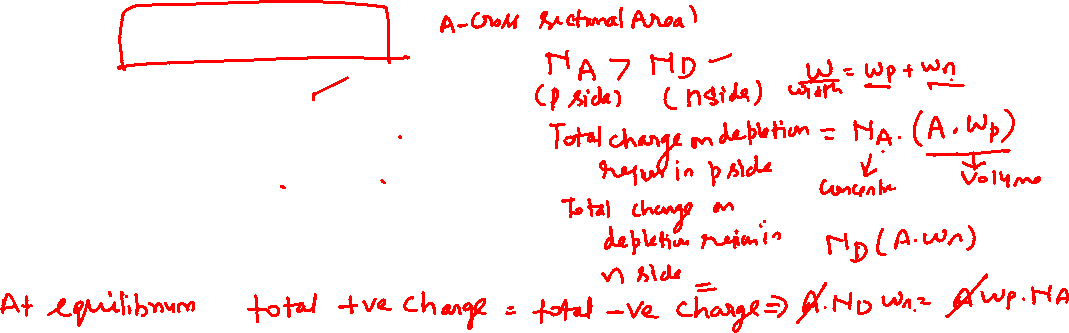 A-Cross sectional Area)
NA > ND
(p side) (n side)
W = Wp + Wn
width
Total charge on depletion = NA. (A. Wp)
region in p side
Volume
Total charge on
depletion region in ND (A. Wn)
n side
At equilibrium total +ve charge = total -ve charge => A. ND Wn = A Wp. NA